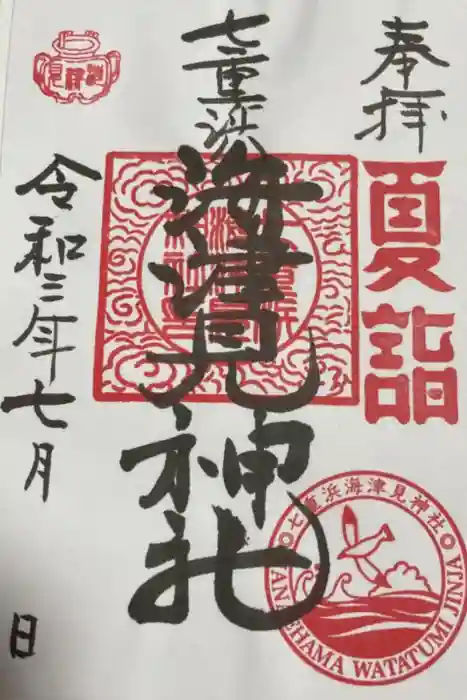 奉拝
夏詣
七重浜
海津見神社
令和三年七月
日
七重浜海津見神社
HAMA WATATUMI JINJA